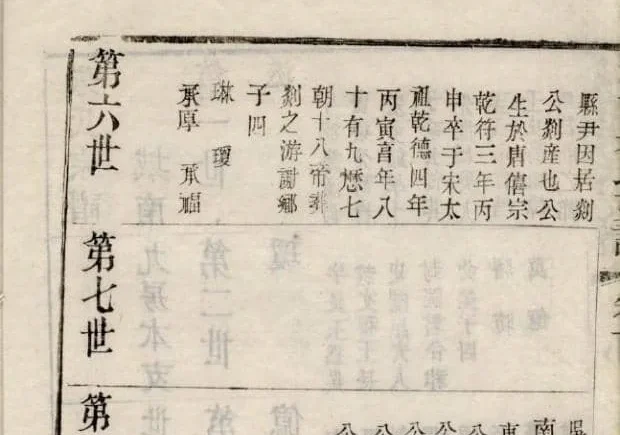 縣尹因居剡
公剡産也公
生於唐僖宗
乾符三年丙
申卒于宋太
祖乾德四年
丙寅亯年八
十有九歷七
朝十八帝葬
剡之游謝鄉
子四
琳 瓊
承厚 承福
第六世
第七世
南
公
公
公
公
公
第